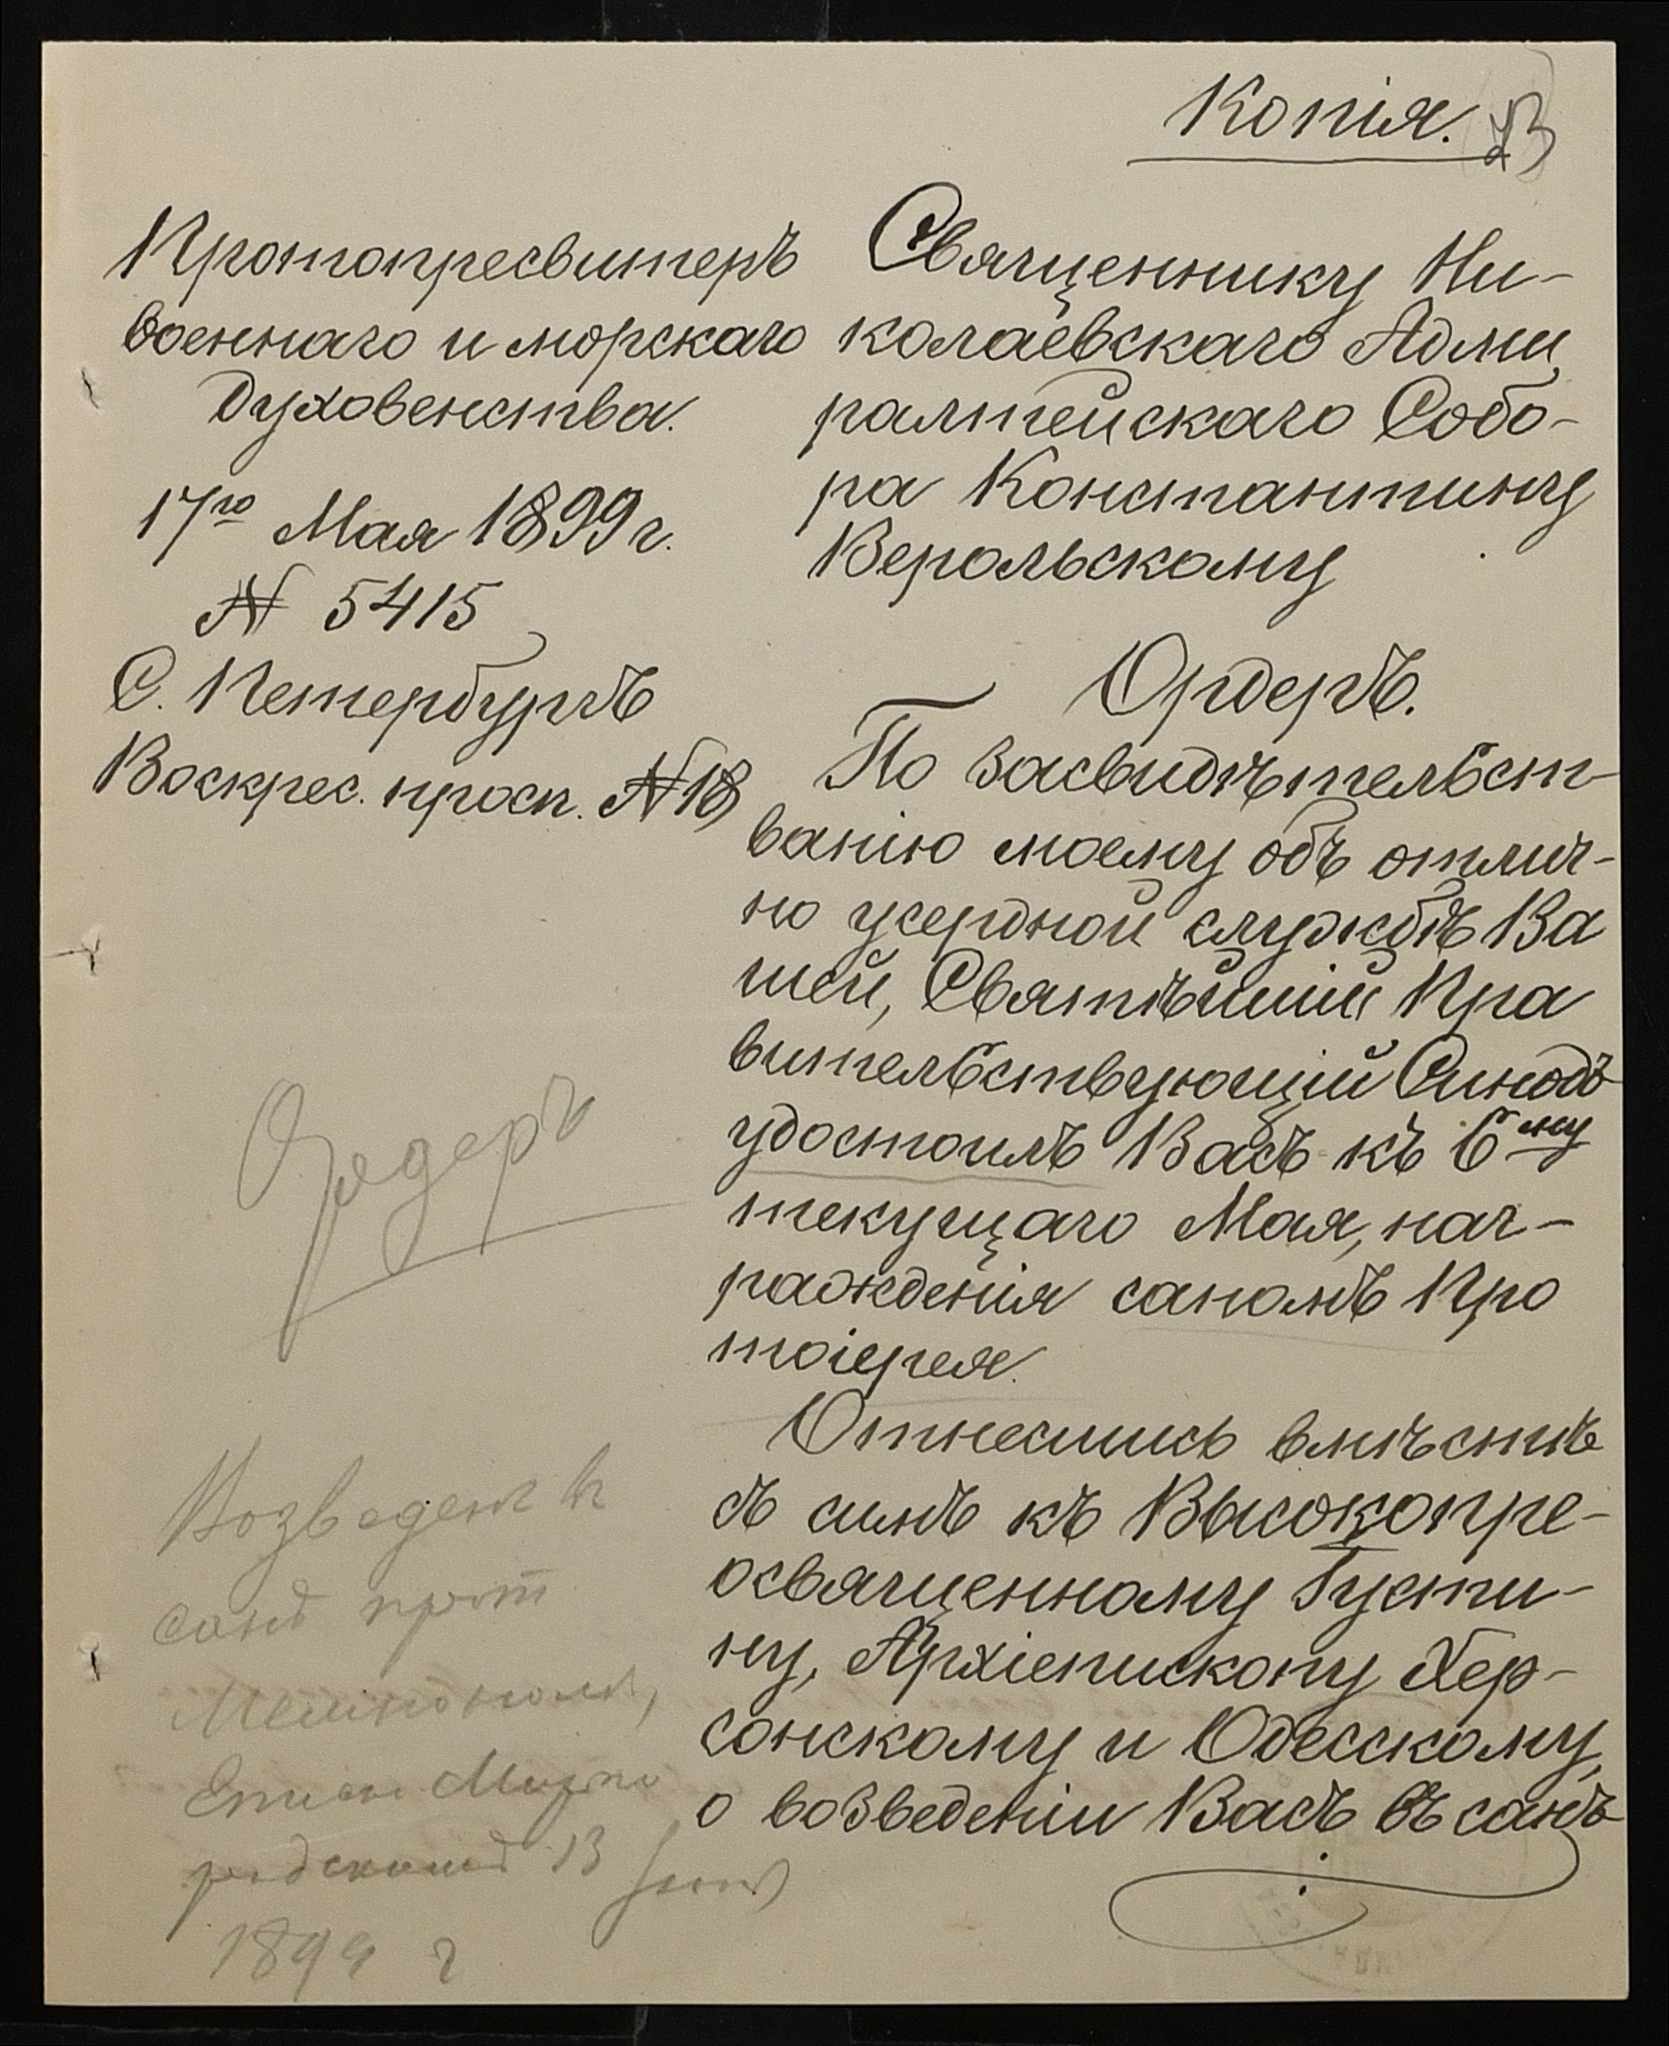 Копія.
Протопресвитеръ
военнаго и морскаго
духовенства.
17го Мая 1899 г.
№ 5415
С. Петербургъ
Воскрес. просп. №18
Священнику Ни-
колаевскаго Адми
ралтейскаго Собо-
ра Константину
Верольскому
Ордеръ.
По засвидѣтельст-
ванію моему объ отлич-
но усердной службѣ Ва
шей, Святѣйшій Пра
вительствующій Синодъ
удостоилъ Васъ къ 6му
текущаго Мая, наг-
ражденія саномъ Про
тоіерея.
Отнесшись вмѣстѣ
съ симъ къ Высокопре-
освященному Густи-
ну, Архіепископу Хер-
сонскому и Одесскому,
о возведеніи Васъ въ санъ
Ордеръ
Возведенъ в
санъ прот
Еписк Мирго
родскимъ 13
1899 г